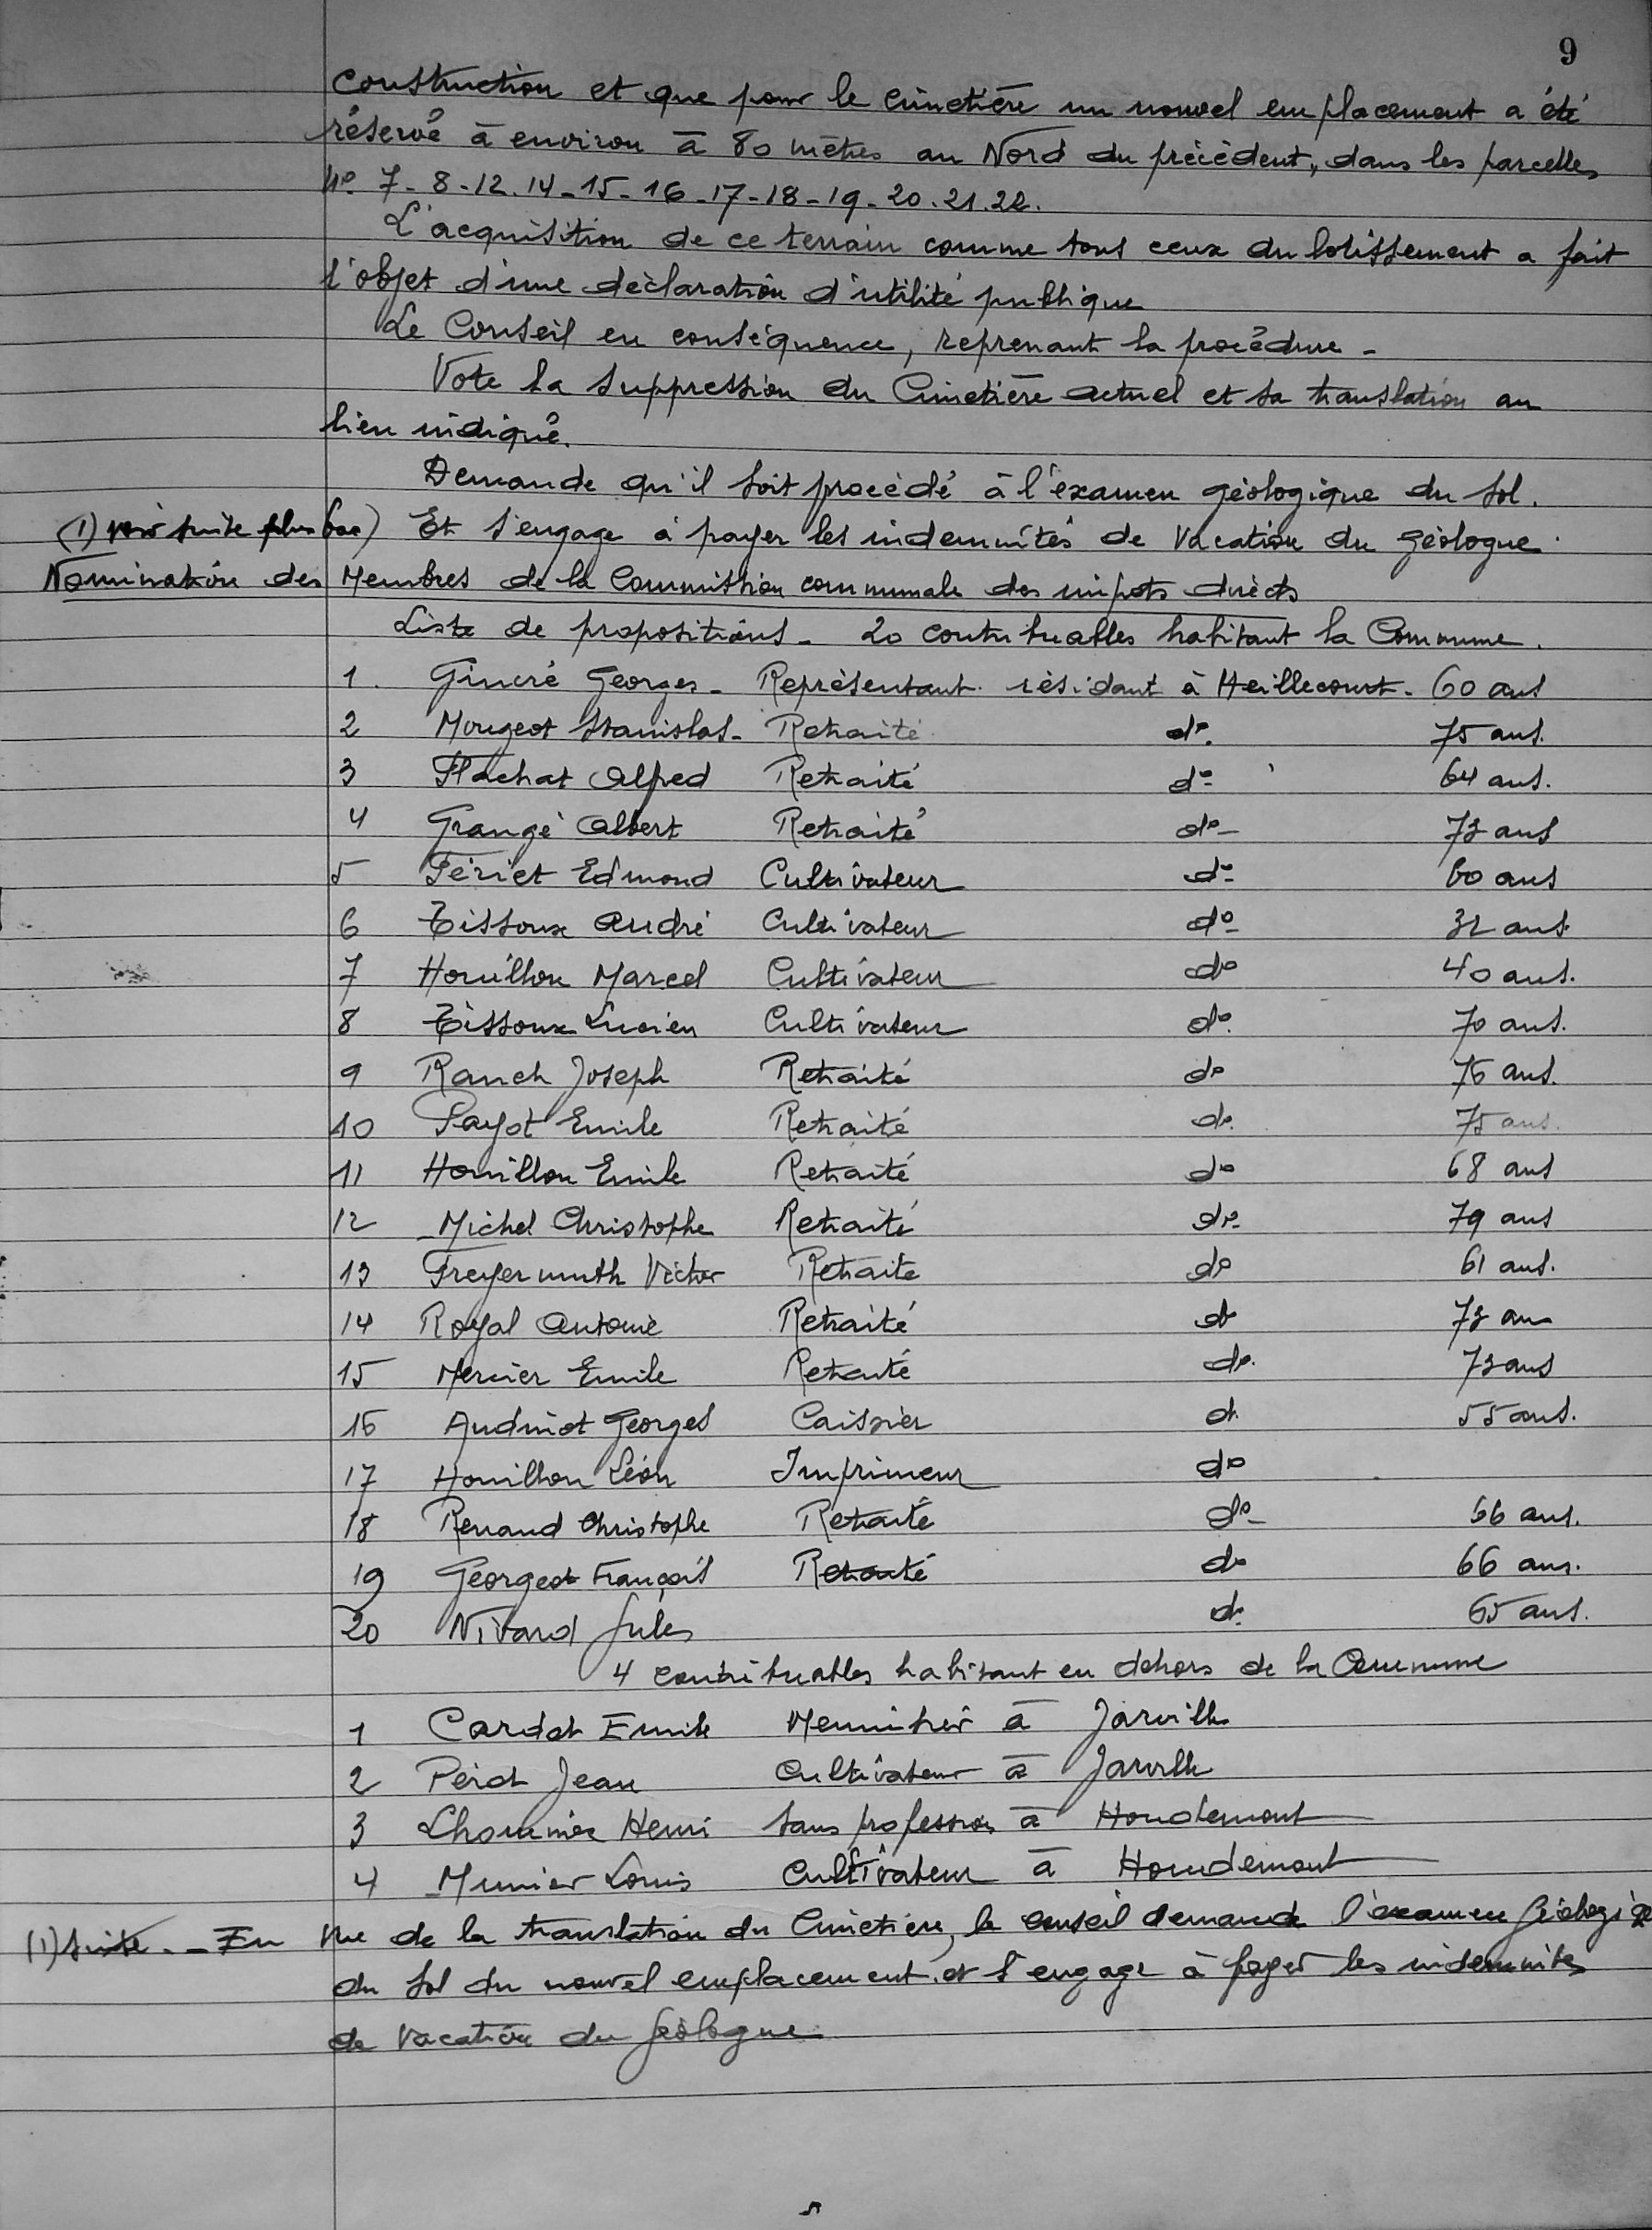 9
construction et que pour le cimetière un nouvel emplacement a été
réservé à environ à 80 mètres au Nord du précédent, dans les parcelles
Nº 7-8-12.14-15-16-17-18-19-20.21.22.
L'acquisition de ce terrain comme tous ceux du lotissement a fait
l'objet d'une déclaration d'utilité publique
Le Conseil en conséquence, reprenant la procédure -
Vote la suppression du Cimetière actuel et sa translation au
lieu indiqué.
Demande qu'il soit procédé à l'examen géologique du sol.
(1) voir suite plus bas) Et s'engage à payer les indemnités de vacation du géologue.
Nomination des Membres de la Commission communale des impots directs
Liste de propositions - 20 contribuables habitant la Commune.
1. Gincré Georges - Représentant résidant à Heillecourt - 60 ans
2 Mougeot Stanislas - Retraité dº 75 ans.
3 Flachat Alfred Retraité dº 64 ans.
4 Grangé Albert Retraité dº- 73 ans
5 Fériet Edmond Cultivateur dº 60 ans
6 Tissoux André Cultivateur dº 32 ans
7 Houillon Marcel Cultivateur dº 40 ans.
8 Tissoux Lucien Cultivateur dº 70 ans.
9 Rauch Joseph Retraité dº 76 ans.
10 Payot Emile Retraité dº 75 ans.
11 Houillon Emile Retraité dº 68 ans
12 Michel Christophe Retraité dº 79 ans
13 Freyermuth Victor Retraité dº 61 ans.
14 Royal Antoine Retraité dº 73 ans
15 Mercier Emile Retraité dº. 73 ans
16 Audinot Georges Caissier d. 55 ans.
17 Houillon Léon Imprimeur dº
18 Renaud Christophe Retraité dº- 66 ans.
19 Georgeot François Retraité dº 66 ans.
20 Nivard Jules d. 65 ans.
4 contribuables habitant en dehors de la Commune
1 Cardot Emile Menuisier à Jarville
2 Pérot Jean Cultivateur à Jarville
3 Lhommée Henri sans profession à Houdemont
4 Munier Louis Cultivateur à Houdemont
(1) Suite. - En vue de la translation du Cimetière, le conseil demande l'examen géologique
du sol du nouvel emplacement et s'engage à payer les indemnités
de vacation du géologue